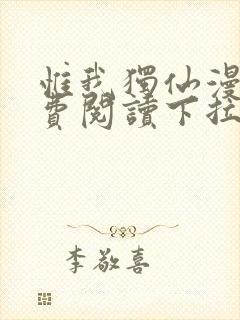 惟我獨仙漫
費閱讀下拉
李敬喜